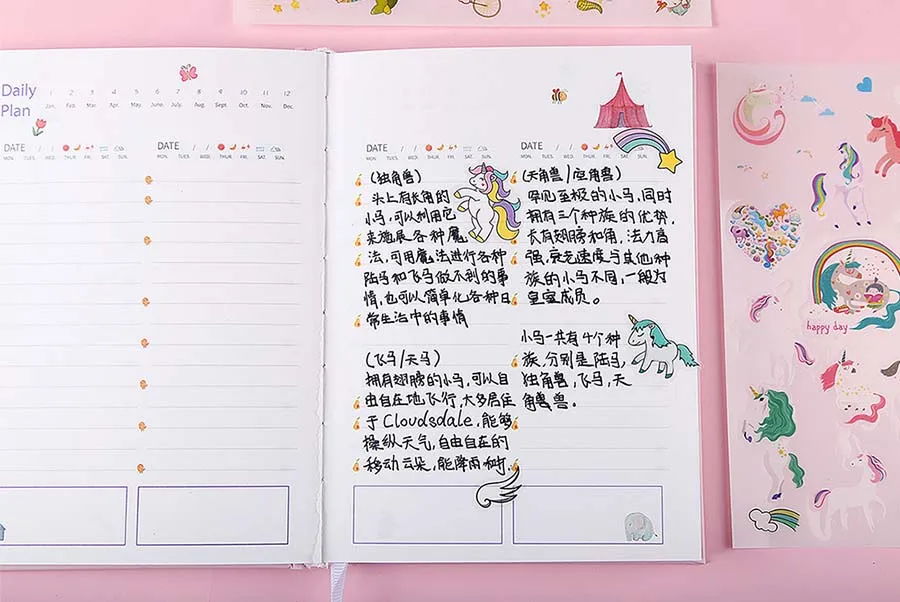 Daily
Plan
1 2 3 4 5 6 7 8 9 10 11 12
Jan. Feb. Mar. Apr. May. June. July. Aug. Sept. Oct. Nov. Dec.
DATE / /
MON. TUES. WED. THUR. FRI. SAT. SUN.
DATE / /
MON. TUES. WED. THUR. FRI. SAT. SUN.
DATE / /
MON. TUES. WED. THUR. FRI. SAT. SUN.
(独角兽)
头上有长角的
小马,可以利用它
来施展各种魔
法,可用魔法进行各种
陆马和飞马做不到的事
情,也可以简单化各种日
常生活中的事情
(飞马/天马)
拥有翅膀的小马,可以自
由自在地飞行,大多居住
于Cloudsdale,能够
操纵天气,自由自在的
移动云朵,能降雨
DATE / /
MON. TUES. WED. THUR. FRI. SAT. SUN.
(天角兽/空角兽)
罕见至极的小马,同时
拥有三个种族的优势,
长有翅膀和角,法力高
强,速度与其他种
族的小马不同,一般为
皇室成员。
小马一共有4个种
族,分别是陆马,
独角兽,飞马,天
角兽。
happy day